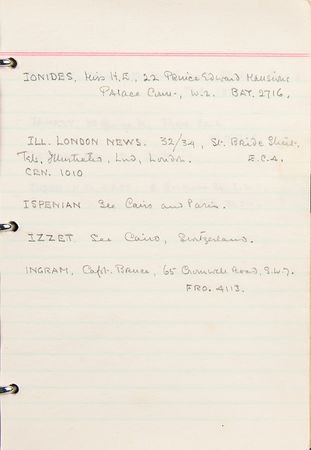 IONIDES, Miss H.E., 22 Prince Edward Mansions
Palace Court, W.2. BAY. 2716.
ILL. LONDON NEWS. 32/34, St. Bride Street,
Tels, Illustrates, Lud, London. E.C.4.
CEN. 1010
ISPENIAN See Cairo and Paris.
IZZET See Cairo, Switzerland.
INGRAM, Capt. Bruce, 65 Cromwell Road, S.W.7.
FRO. 4113.